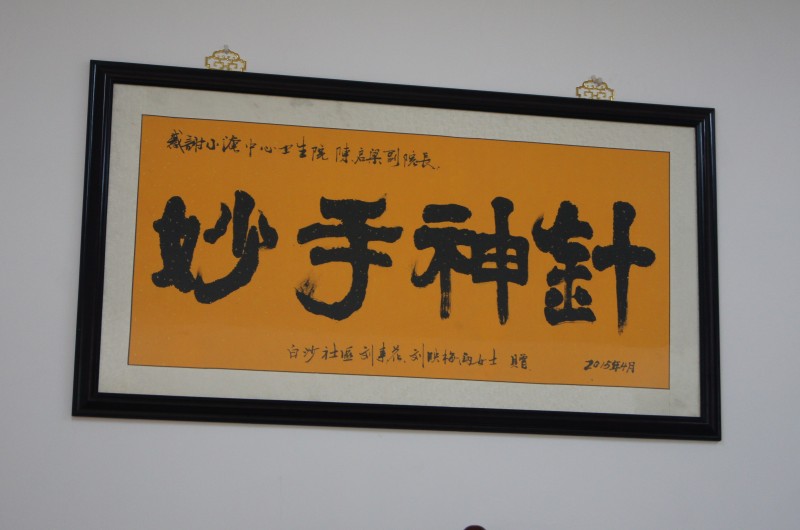 感謝小淹中心卫生院 陳启梁副院長
妙手神針
白沙社區 刘東花 刘映梅 女士 贈
2015年4月